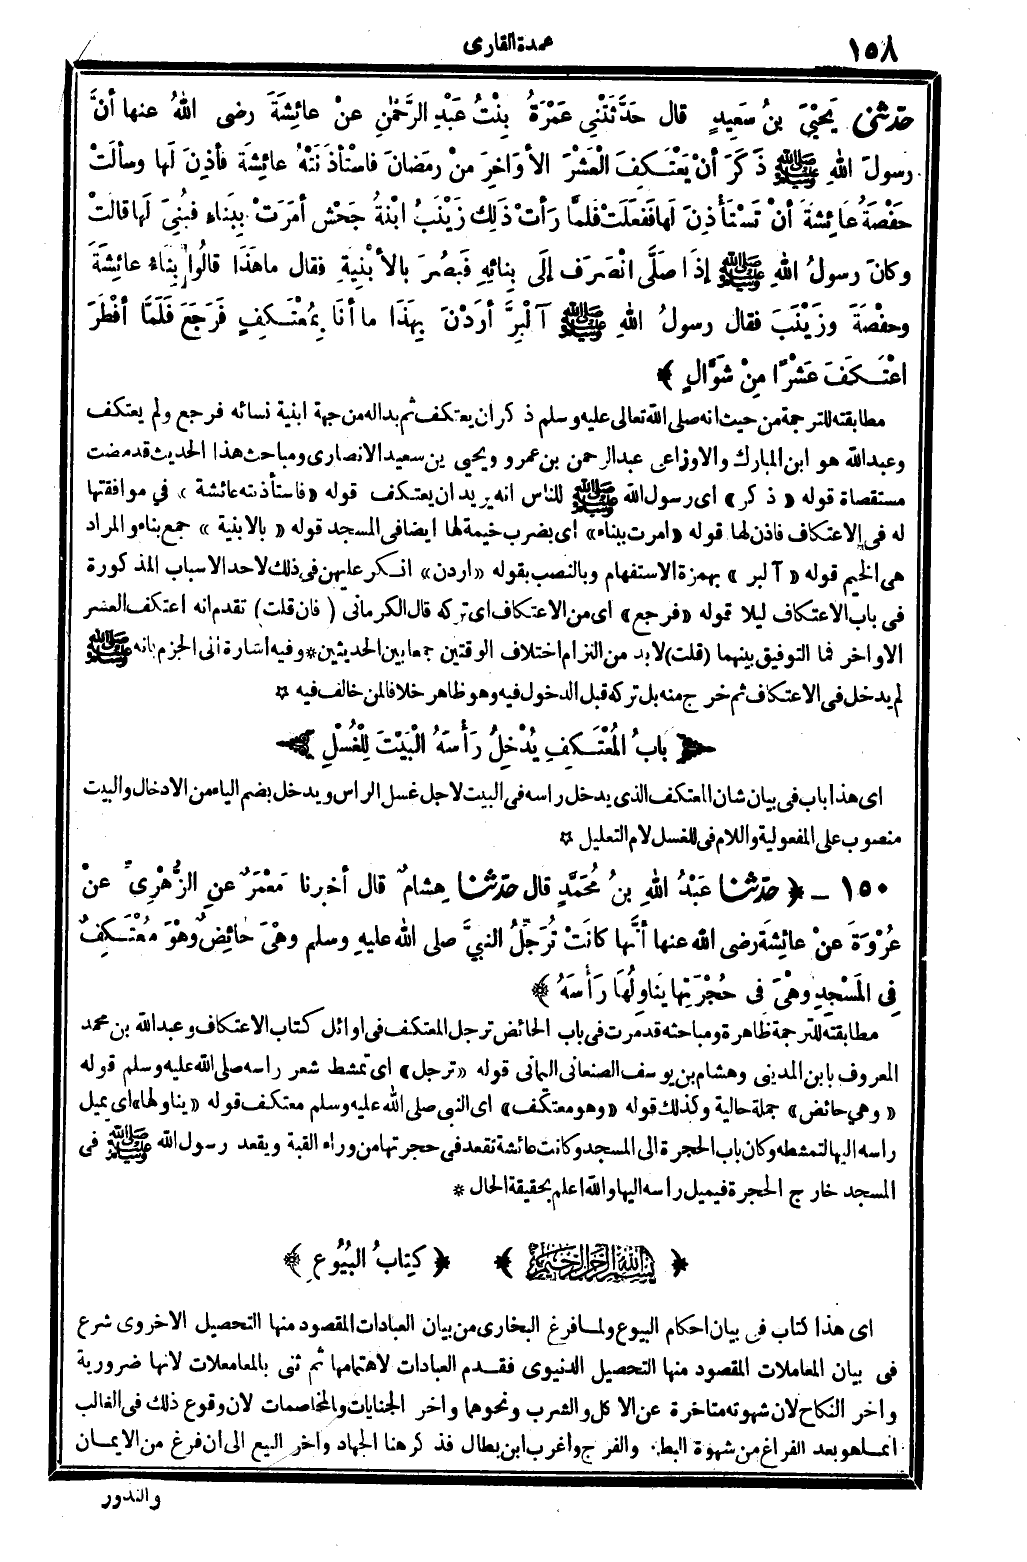 ١٥٨
عمدة القارى
حَدَّثَنِى يَحْيَى بنُ سَعِيدٍ قال حَدَّثَتْنِى عَمْرَةُ بِنْتُ عَبْدِ الرَّحْمٰنِ عنْ عائِشَةَ رضى اللهُ عنها أنَّ
رسولَ اللهِ ﷺ ذَكَرَ أنْ يَعْتَكِفَ الْعَشْرَ الأوَاخِرَ مِنْ رمَضانَ فاسْتأذَنَتْهُ عائِشَةُ فأذِنَ لَها وسألَتْ
حَفْصَةُ عَائِشَةَ أنْ تَسْتَأْذِنَ لَها فَفَعَلَتْ فلَمَّا رَأتْ ذَلِكَ زَيْنَبُ ابْنَةُ جَحْشٍ أمَرَتْ بِبِناءٍ فَبُنِىَ لَها قالتْ
وكانَ رسولُ اللهِ ﷺ إذَا صَلَّى انْصَرَفَ إلَى بِنائِهِ فَبَصُرَ بالأبْنِيَةِ فقال ماهَذَا قالُوا بِناءُ عائِشَةَ
وحفْصَةَ وزَيْنَبَ فقال رسولُ اللهِ ﷺ آلْبِرَّ أرَدْنَ بِهَذَا ما أنَا بِمُعْتَكِفٍ فَرَجَعَ فَلَمَّا أفْطَرَ
اعْتَكَفَ عَشْرًا مِنْ شَوَّالٍ ﴾
مطابقته للترجمة من حيث انه صلى الله تعالى عليه وسلم ذكر ان يعتكف ثم بداله من جهة ابنية نسائه فرجع ولم يعتكف
وعبدالله هو ابن المبارك والاوزاعى عبدالرحمن بن عمرو ويحيى بن سعيد الانصارى ومباحث هذا الحديث قد مضت
مستقصاة قوله «ذكر» اى رسول الله ﷺ للناس انه يريد ان يعتكف قوله «فاستأذنته عائشة» فى موافقتها
له فى الاعتكاف فاذن لها قوله «امرت ببناء» اى بضرب خيمة لها ايضا فى المسجد قوله «بالابنية» جمع بناء والمراد
هى الخيم قوله «آلبر» بهمزة الاستفهام وبالنصب بقوله «اردن» انكر عليهن فى ذلك لاحد الاسباب المذكورة
فى باب الاعتكاف ليلا قوله «فرجع» اى من الاعتكاف اى تركه قال الكرمانى (فان قلت) تقدم انه اعتكف العشر
الاواخر فما التوفيق بينهما (قلت) لابد من التزام اختلاف الوقتين جمعا بين الحديثين * وفيه اشارة الى الجزم بانه ﷺ
لم يدخل فى الاعتكاف ثم خرج منه بل تركه قبل الدخول فيه وهو ظاهر خلافا لمن خالف فيه ✩
﴿ بابُ المُعْتَكِفِ يُدْخِلُ رَأسَهُ الْبَيْتَ لِلْغُسْلِ ﴾
اى هذا باب فى بيان شان المعتكف الذى يدخل راسه فى البيت لاجل غسل الراس ويدخل بضم الياء من الادخال والبيت
منصوب على المفعولية واللام فى للغسل لام التعليل ✩
١٥٠ ـ ﴿ حَدَّثَنَا عَبْدُ اللهِ بنُ مُحَمَّدٍ قال حَدَّثَنَا هِشامٌ قال أخبرنا مَعْمَرٌ عنِ الزُّهْرِىِّ عنْ
عُرْوَةَ عنْ عائِشَةَ رضى الله عنها أنَّها كانَتْ تُرَجِّلُ النبىَّ صلى الله عليهِ وسلم وهْىَ حائِضٌ وهْوَ مُعْتَكِفٌ
فِى المَسْجِدِ وهْىَ فى حُجْرَتِها يُناوِلُهَا رَأسَهُ ﴾
مطابقته للترجمة ظاهرة ومباحثه قد مرت فى باب الحائض ترجل المعتكف فى اوائل كتاب الاعتكاف وعبدالله بن محمد
المعروف بابن المدينى وهشام بن يوسف الصنعانى اليمانى قوله «ترجل» اى تمشط شعر راسه صلى الله عليه وسلم قوله
«وهى حائض» جملة حالية وكذلك قوله «وهو معتكف» اى النبى صلى الله عليه وسلم معتكف قوله «يناولها» اى يميل
راسه اليها لتمشطه وكان باب الحجرة الى المسجد وكانت عائشة تقعد فى حجرتها من وراء القبة ويقعد رسول الله ﷺ فى
المسجد خارج الحجرة فيميل راسه اليها والله اعلم بحقيقة الحال *
﴿ بسم الله الرحمن الرحيم ﴾ ﴿ كِتابُ البُيُوعِ ﴾
اى هذا كتاب فى بيان احكام البيوع ولما فرغ البخارى من بيان العبادات المقصود منها التحصيل الاخروى شرع
فى بيان المعاملات المقصود منها التحصيل الدنيوى فقدم العبادات لاهتمامها ثم ثنى بالمعاملات لانها ضرورية
واخر النكاح لان شهوته متاخرة عن الاكل والشرب ونحوهما واخر الجنايات والمخاصمات لان وقوع ذلك فى الغالب
انما هو بعد الفراغ من شهوة البطن والفرج واغرب ابن بطال فذكر هنا الجهاد واخر البيع الى ان فرغ من الايمان
والنذور